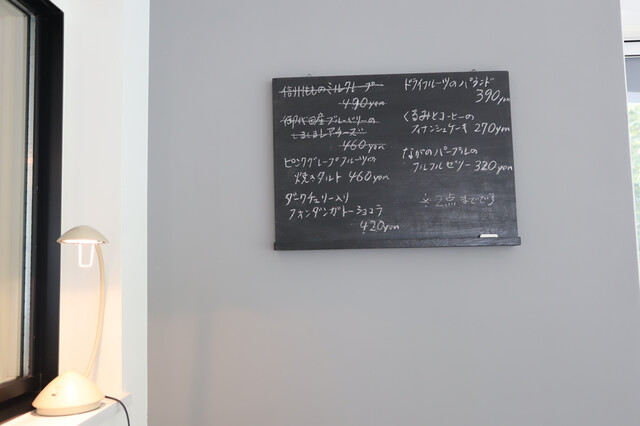 信州ももミルクレープ
490yen
御代田産ブルーベリーの
しましまレアチーズ
460yen
ピンクグレープフルーツの
焼きタルト 460yen
ダークチェリー入り
フォンダンガトーショコラ
420yen
ドライフルーツのパウンド
390yen
くるみとコーヒーの
フィナンシェケーキ 270yen
ながのパープルの
フルフルゼリー 320yen
※2点までです